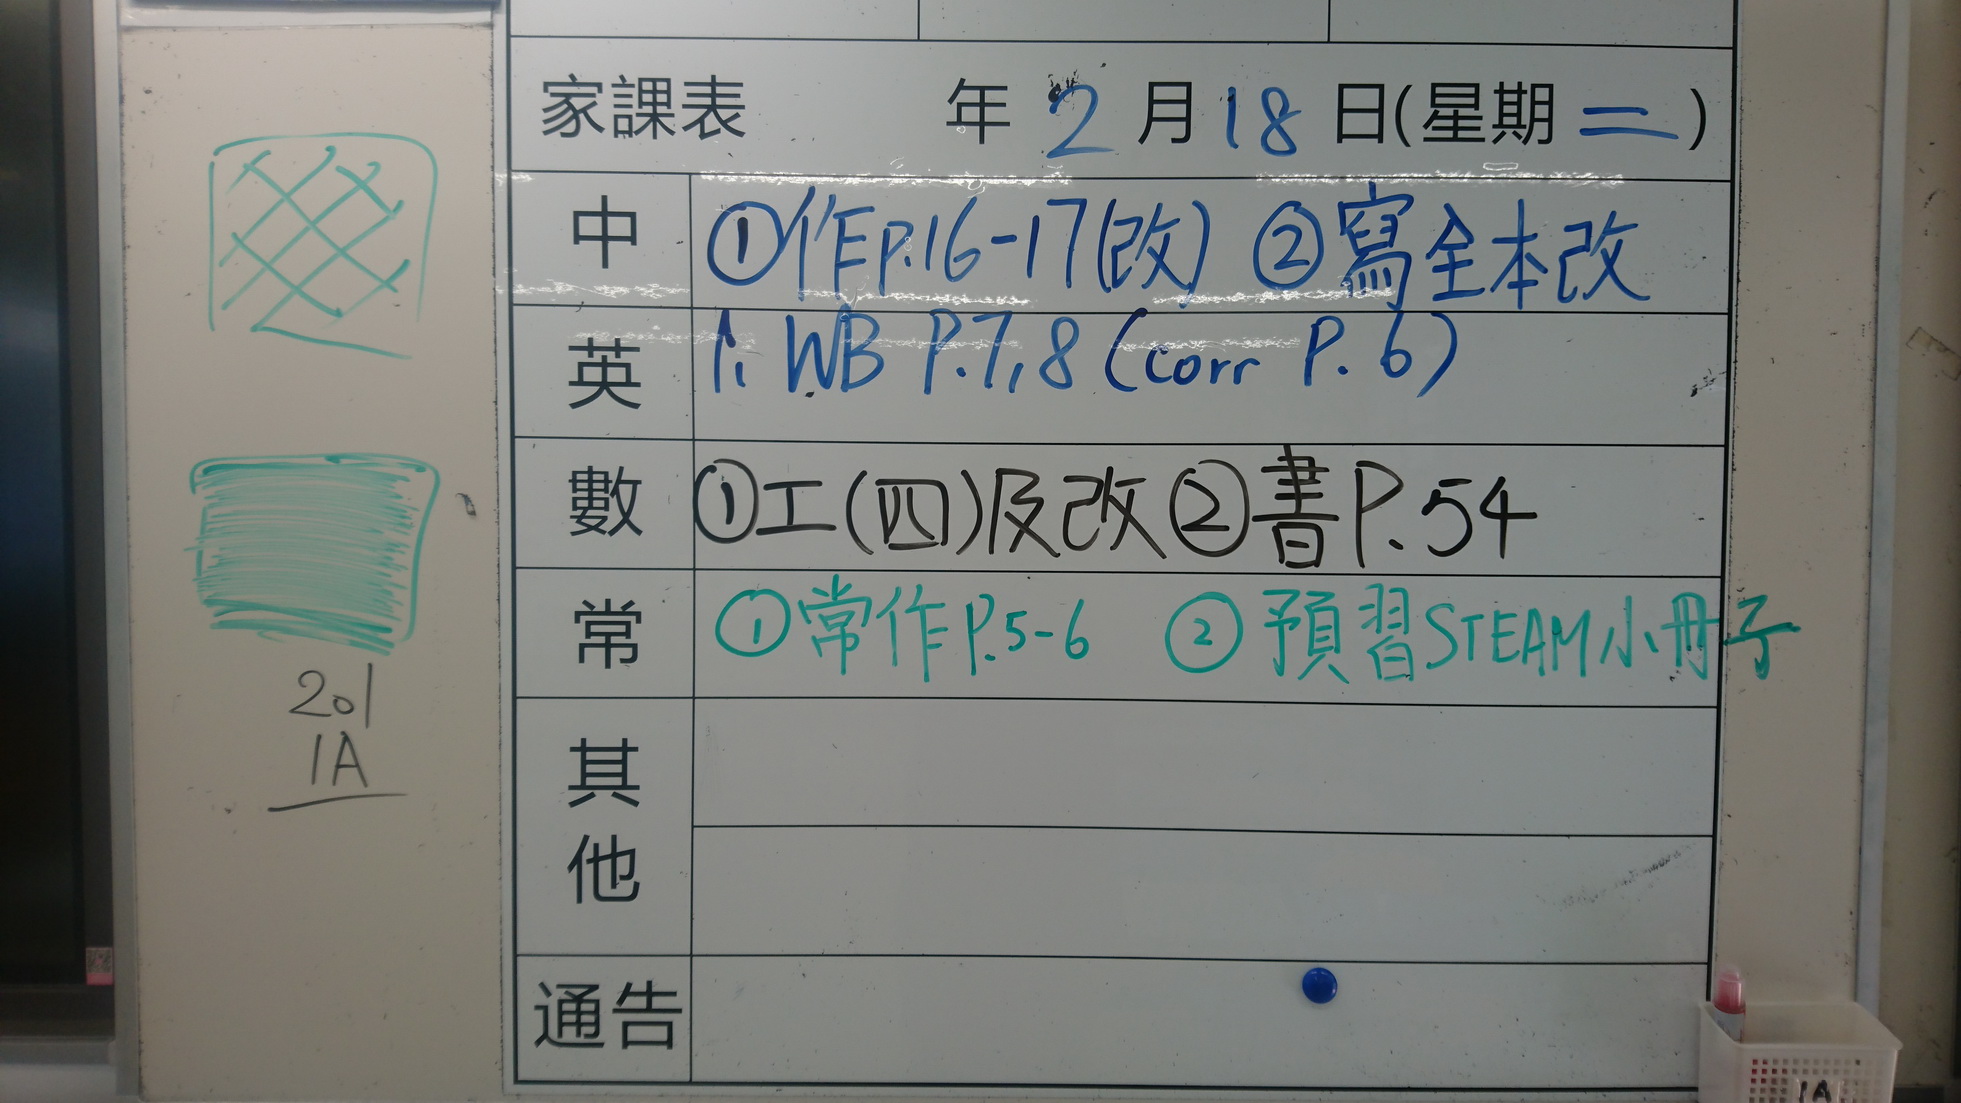 家課表 年2月18日(星期二)
中 ①作P.16-17(改) ②寫全本改
英 1. WB P.7,8 (corr P. 6)
數 ①工(四)及改②書P.54
常 ①常作P.5-6 ②預習STEAM小冊子
其他
通告
201
1A
1A